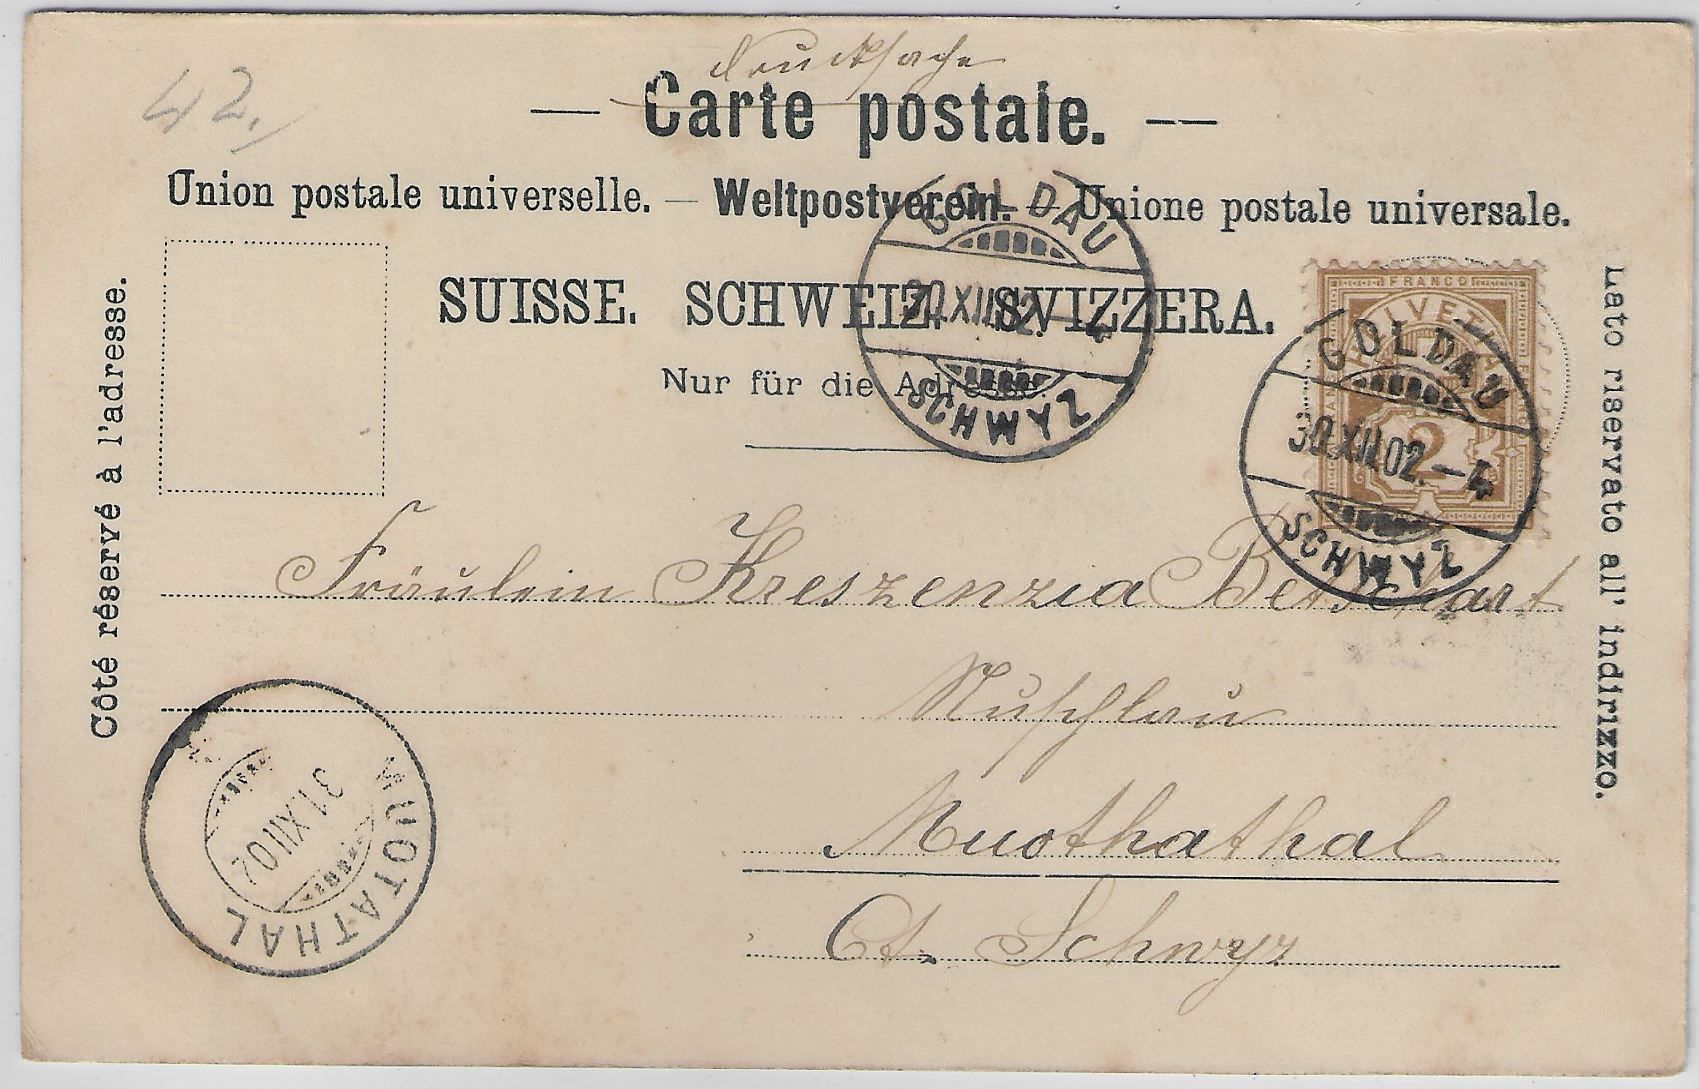 42.
Drucksache
— Carte postale. —
Union postale universelle. — Weltpostverein. — Unione postale universale.
SUISSE. SCHWEIZ. SVIZZERA.
Nur für die Adresse.
Côté réservé à l'adresse.
Lato riservato all' indirizzo.
GOLDAU
30.XII.02.–4
SCHWYZ
FRANCO
HELVETIA
2
GOLDAU
30.XII.02.–4
SCHWYZ
Fräulein Kreszenzia Betschart
Muotathal
Ct. Schwyz
MUOTATHAL
31.XII.02